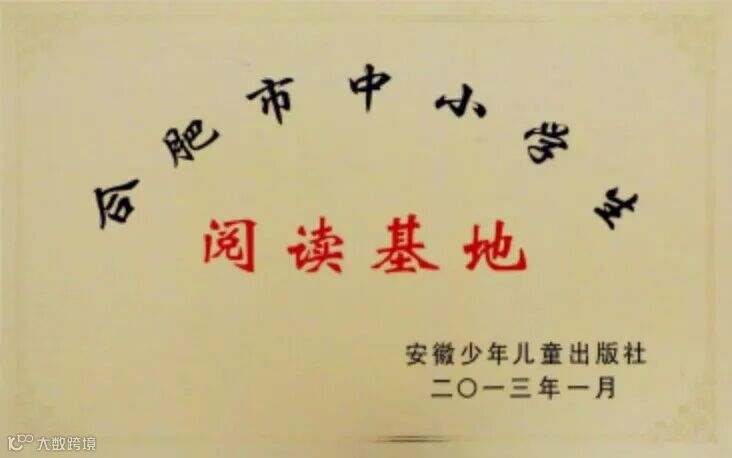 合肥市中小学生
阅读基地
安徽少年儿童出版社
二〇一三年一月
大数跨境